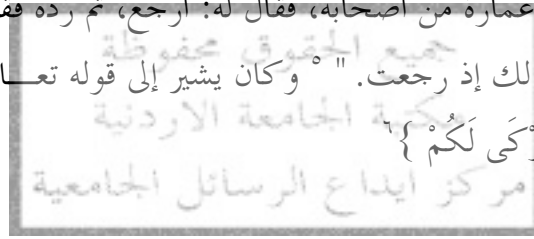 عمارة من أصحابه، فقال له: ارجع، ثم رده
جميع الحقوق محفوظة
لك إذ رجعت. " ٥ وكان يشير إلى قوله تعـــا
مكتبة الجامعة الاردنية
كَى لَكُمْ } ٦
مركز ايداع الرسائل الجامعية